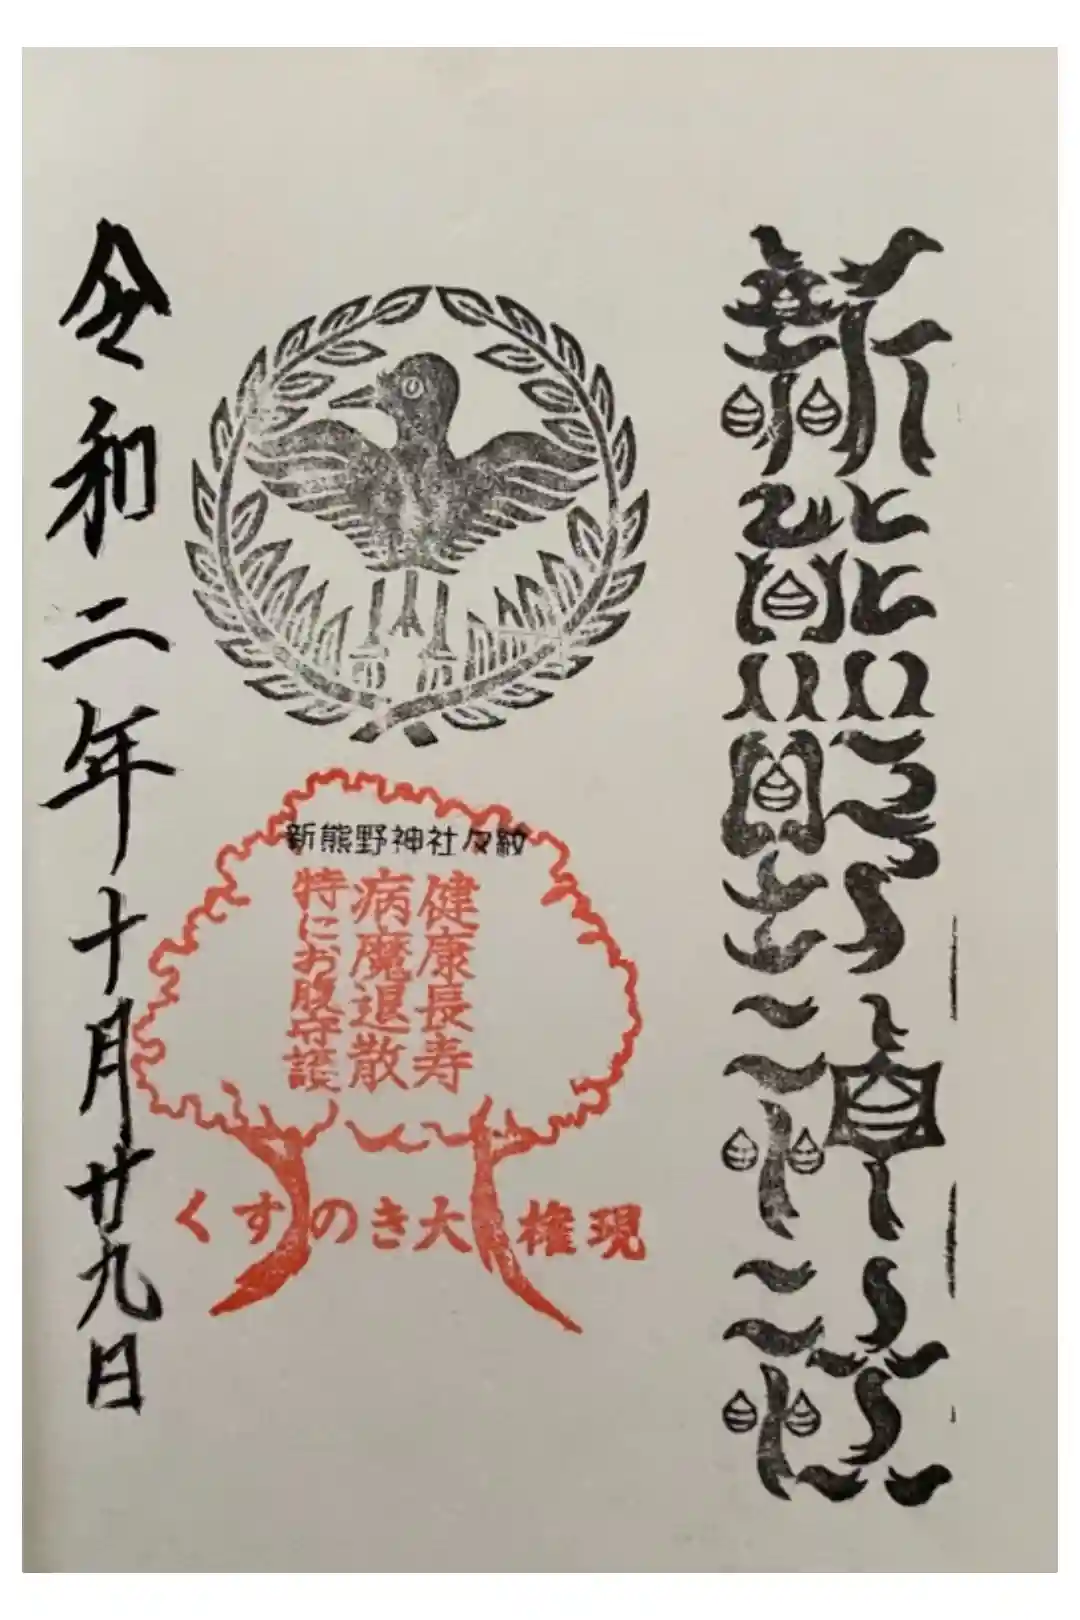 新熊野神社
新熊野神社々紋
健康長寿
病魔退散
特にお腹守護
くすのき大権現
令和二年十月廿九日